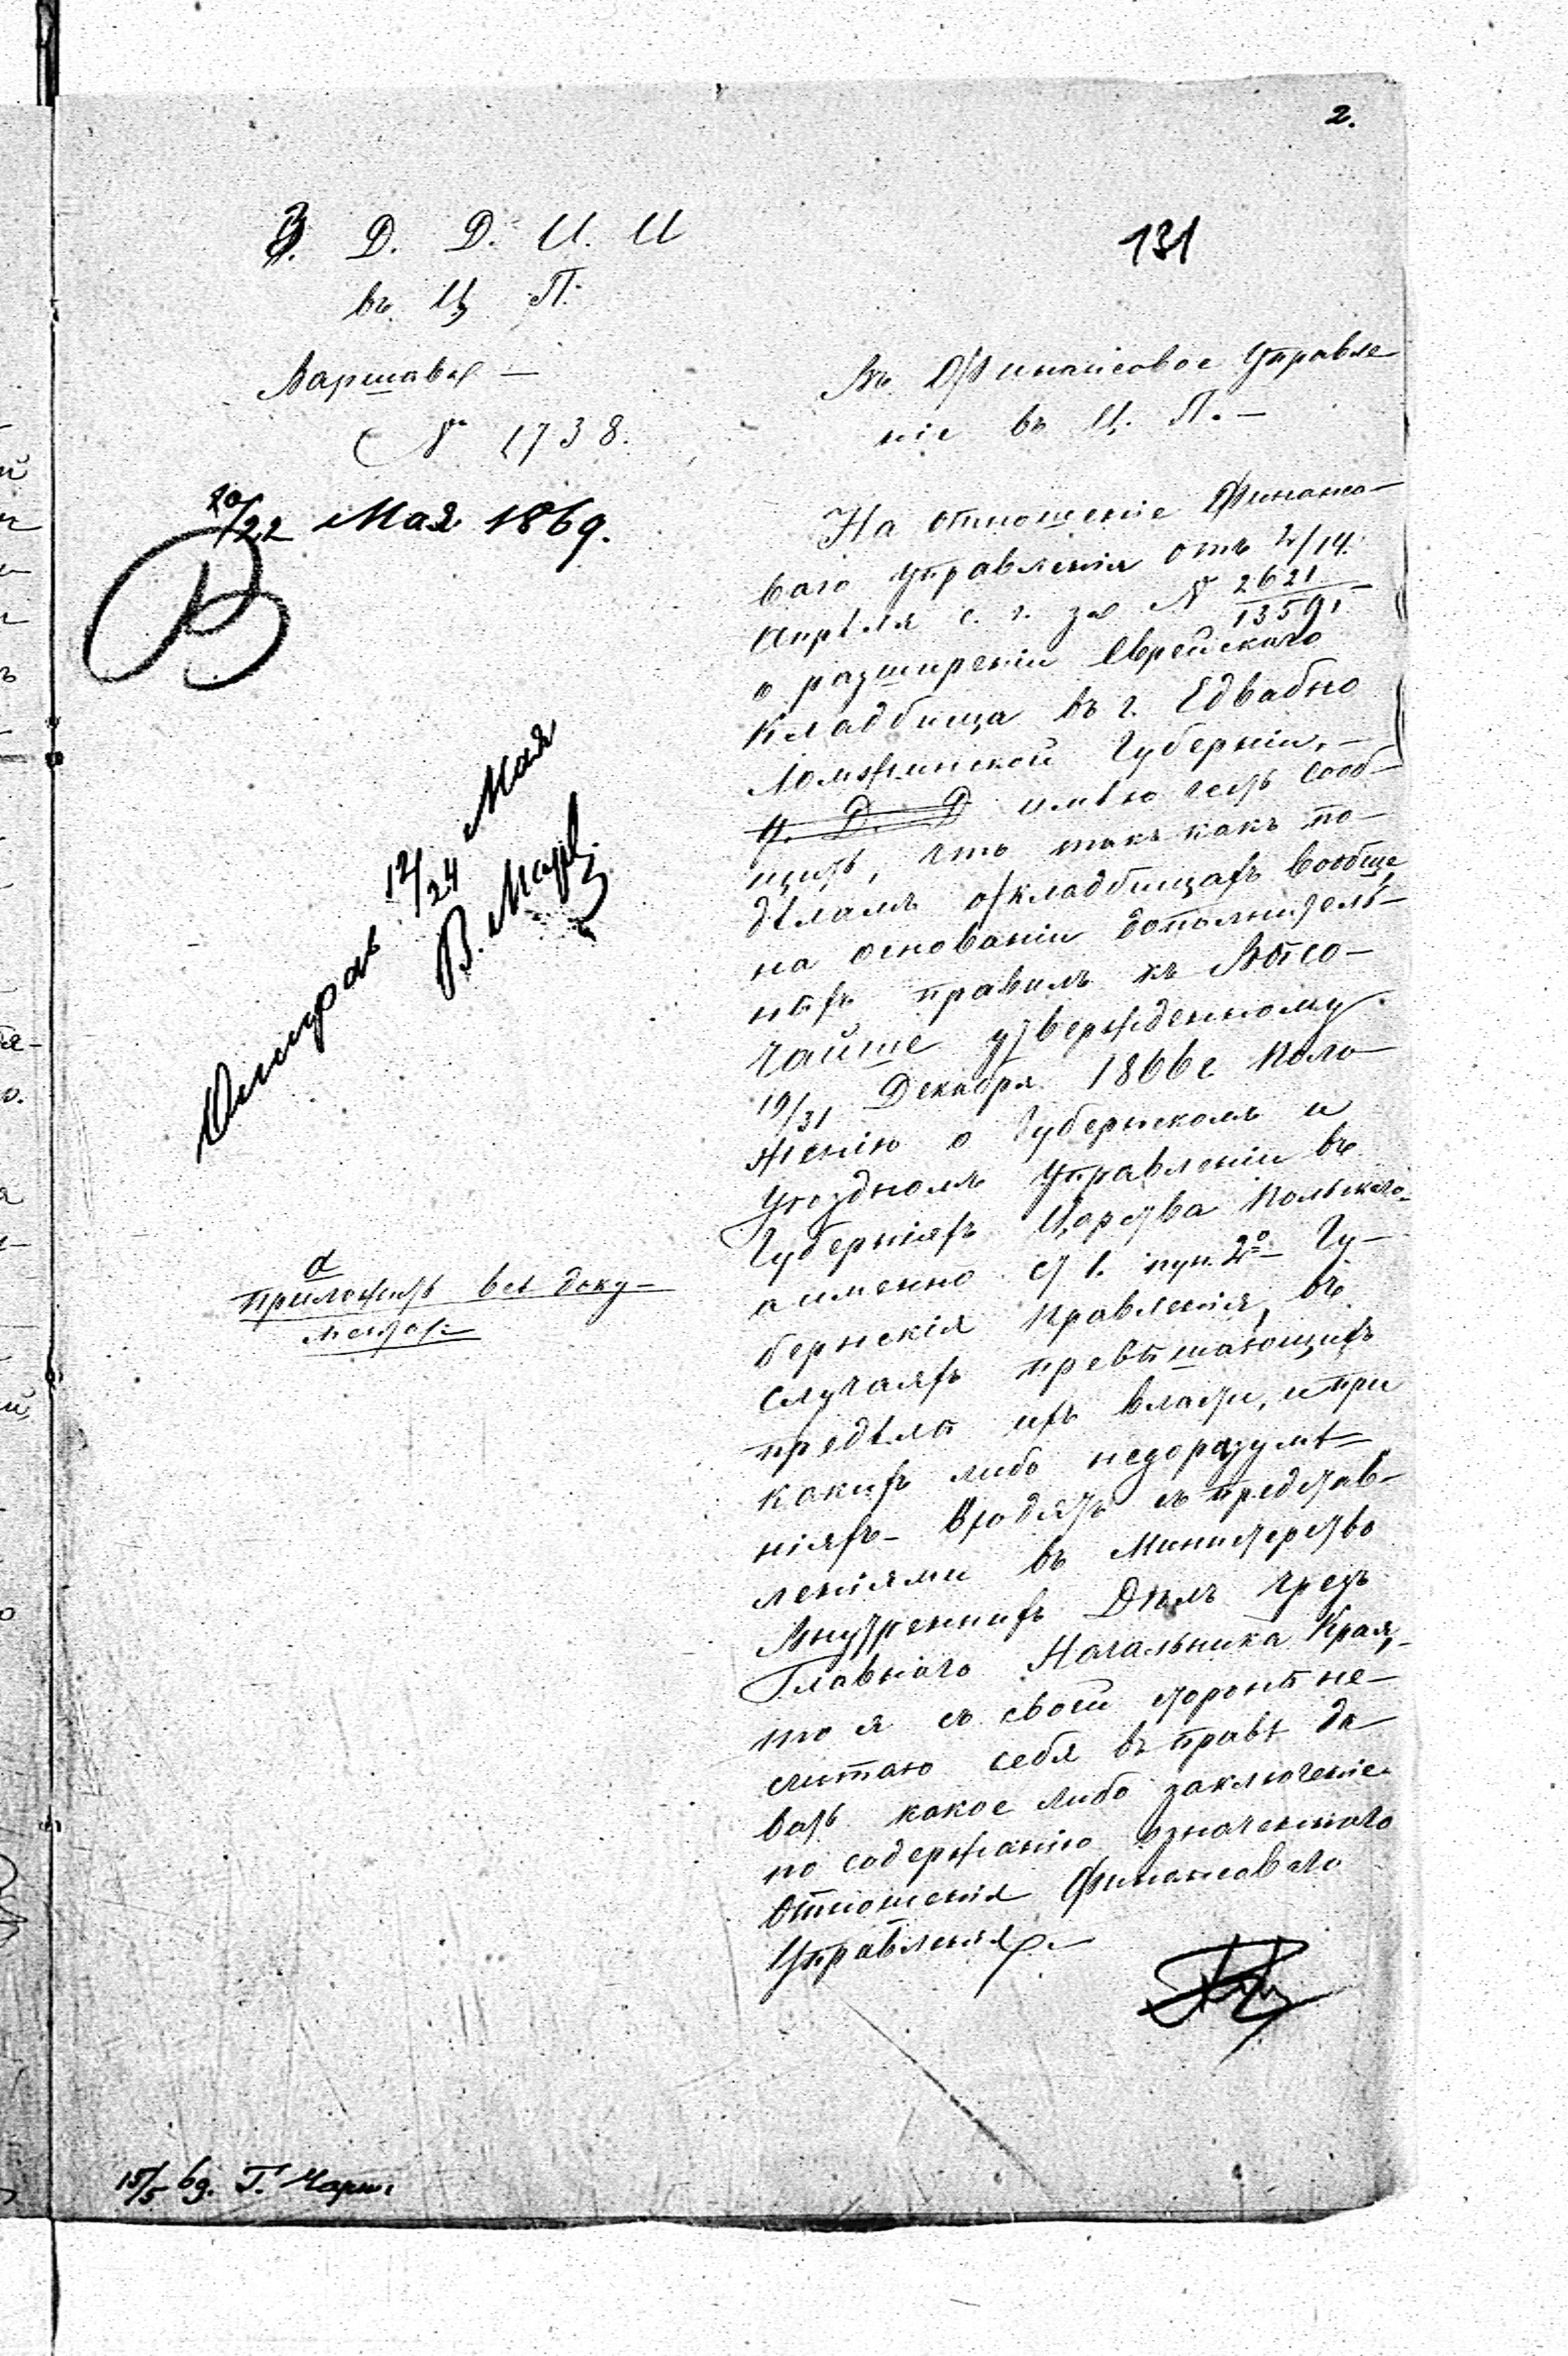 2.
131
З. Д. Д. И. И
въ Ц П.
Варшава —
№ 1738.
10/22 Мая 1869.
В
12/24 Мая
В.
а
приложить всѣ доку-
менты:
Въ Финансовое Управле-
ніе въ Ц. П. —
На отношеніе Финансо-
ваго Управленія отъ 2/14
Апрѣля с. г. за № 2621/13591
о разширеніи Еврейскаго
Кладбища въ г. Едвабно
Ломжинской Губерніи, —
имѣю честь сооб-
щить, что такъ какъ по
дѣламъ о кладбищахъ вообще,
на основаніи дополнитель-
ныхъ правилъ къ Высо-
чайше утвержденному
19/31 Декабря 1866 г. Поло-
женію о Губернскомъ и
Уѣздномъ Управленіи въ
Губерніяхъ Царства Польскаго
а именно ст 1. пун. 2º — Гу-
бернскія Правленія, въ
случаяхъ превышающихъ
предѣлы ихъ власти, и при
какихъ либо недоразумѣ-
ніяхъ — входятъ съ представ-
леніями въ Министерство
Внутреннихъ Дѣлъ чрезъ
Главнаго Начальника Края, —
то я съ своей стороны не-
считаю себя въ правѣ да-
вать какое либо заключеніе
по содержанію означеннаго
Отношенія Финансоваго
Управленія. —
15/5 69. Г.